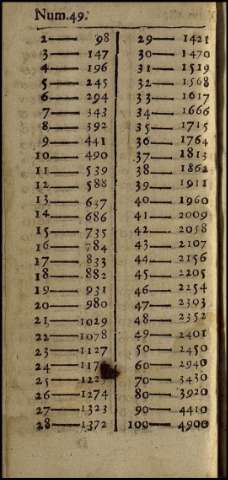 Num.49.
2—98
3—147
4—196
5—245
6—294
7—343
8—392
9—441
10—490
11—539
12—588
13—637
14—686
15—735
16—784
17—833
18—882
19—931
20—980
21—1029
22—1078
23—1127
24—
25—
26—1274
27—1323
28—1372
29—1421
30—1470
31—1519
32—1568
33—1617
34—1666
35—1715
36—1764
37—1813
38—1862
39—1911
40—1960
41—2009
42—2058
43—2107
44—2156
45—2205
46—2254
47—2303
48—2352
49—2401
50—2450
60—2940
70—3430
80—3920
90—4410
100—4900